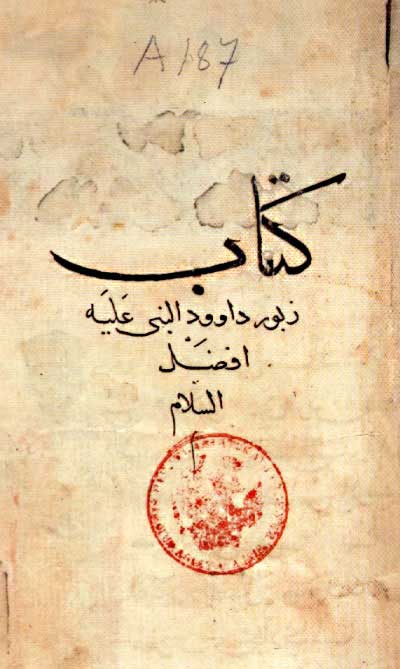 A187
كتاب
زبور داوود النبى عَليَه
افضَل
السلام